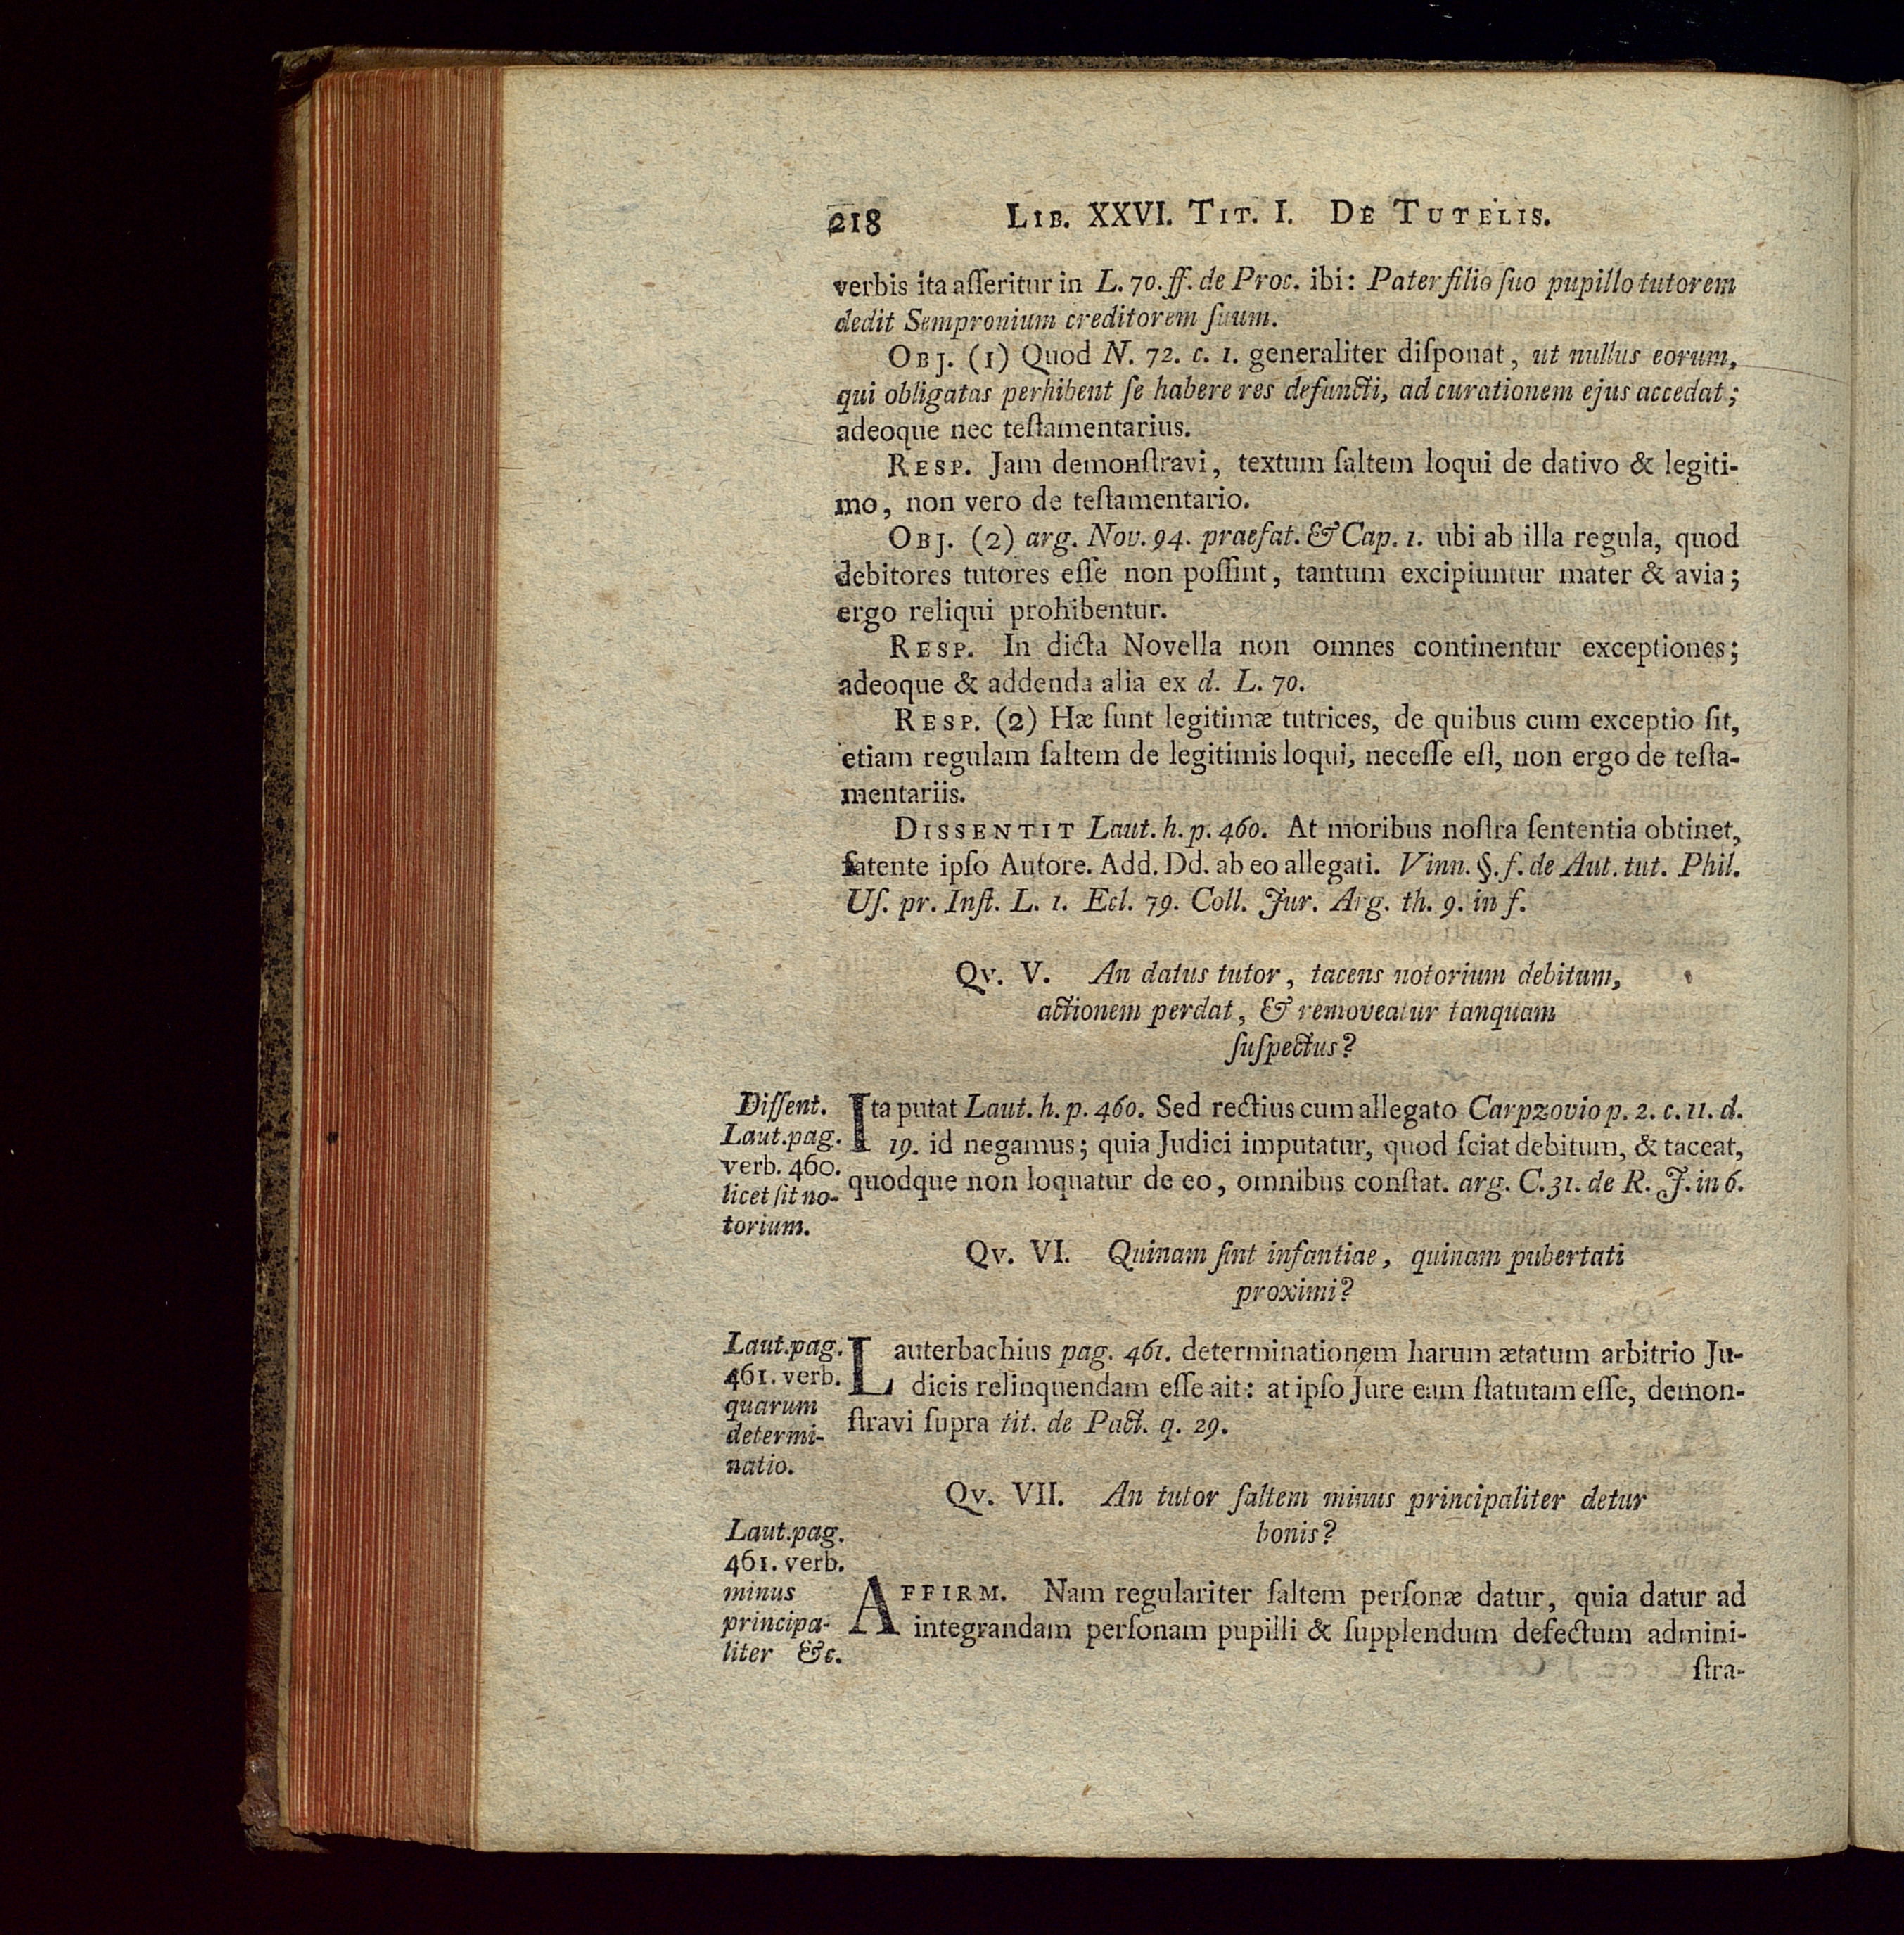 218 LIB. XXVI. TIT. I. DE TUTELIS.
verbis ita asseritur in L. 70. ff. de Proc. ibi: Pater filio suo pupillo tutorem
dedit Sempronium creditorem suum.
OBJ. (1) Quod N. 72. c. 1. generaliter disponat, ut nullus eorum,
qui obligatas perhibent se habere res defuncti, ad curationem ejus accedat;
adeoque nec testamentarius.
RESP. Jam demonstravi, textum saltem loqui de dativo & legiti-
mo, non vero de testamentario.
OBJ. (2) arg. Nov. 94. praefat. & Cap. 1. ubi ab illa regula, quod
debitores tutores esse non possint, tantum excipiuntur mater & avia;
ergo reliqui prohibentur.
RESP. In dicta Novella non omnes continentur exceptiones;
adeoque & addenda alia ex d. L. 70.
RESP. (2) Hæ sunt legitimæ tutrices, de quibus cum exceptio sit,
etiam regulam saltem de legitimis loqui, necesse est, non ergo de testa-
mentariis.
DISSENTIT Laut. h. p. 460. At moribus nostra sententia obtinet,
fatente ipso Autore. Add. Dd. ab eo allegati. Vinn. §. f. de Aut. tut. Phil.
Us. pr. Inst. L. 1. Ecl. 79. Coll. Jur. Arg. th. 9. in f.
Qv. V. An datus tutor, tacens notorium debitum,
actionem perdat, & removeatur tanquam
suspectus?
Dissent.
Laut. pag.
verb. 460.
licet sit no-
torium.
Ita putat Laut. h. p. 460. Sed rectius cum allegato Carpzovio p. 2. c. 11. d.
19. id negamus; quia Judici imputatur, quod sciat debitum, & taceat,
quodque non loquatur de eo, omnibus constat. arg. C. 31. de R. J. in 6.
Qv. VI. Quinam sint infantiae, quinam pubertati
proximi?
Laut. pag.
461. verb.
quarum
determi-
natio.
Lauterbachius pag. 461. determinationem harum ætatum arbitrio Ju-
dicis relinquendam esse ait: at ipso Jure eam statutam esse, demon-
stravi supra tit. de Pact. q. 29.
Qv. VII. An tutor saltem minus principaliter detur
bonis?
Laut. pag.
461. verb.
minus
principa-
liter &c.
AFFIRM. Nam regulariter saltem personæ datur, quia datur ad
integrandam personam pupilli & supplendum defectum admini-
stra-